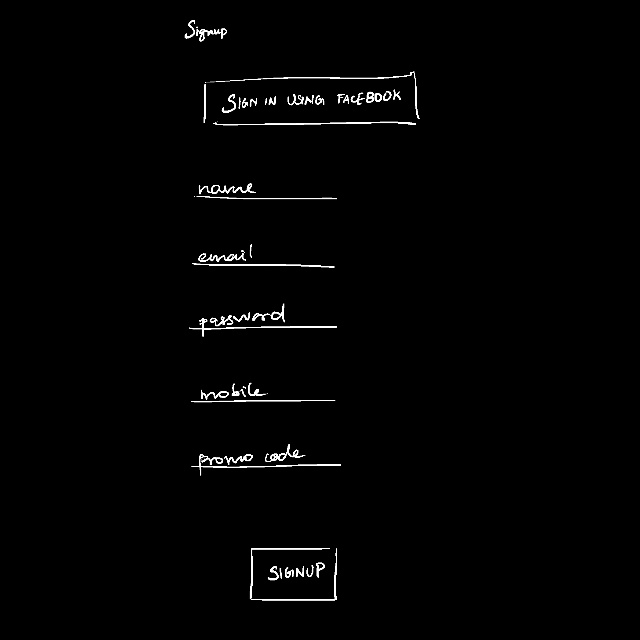 Signup
SIGN IN USING FACEBOOK
name
email
password
mobile
promo code
SIGNUP